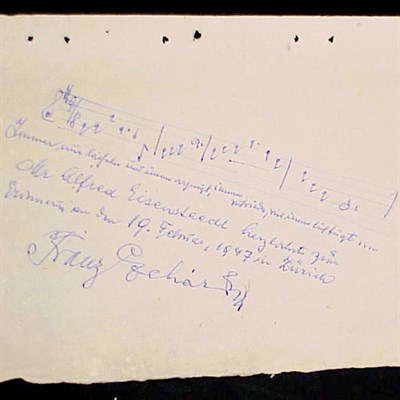 Immer nur lächeln und immer vergnügt, immer
zufrieden,
Mr Alfred Eisenstaedt herzlichst zur
Erinnerung an den 19. Februar 1947 in Zürich
Franz Lehár